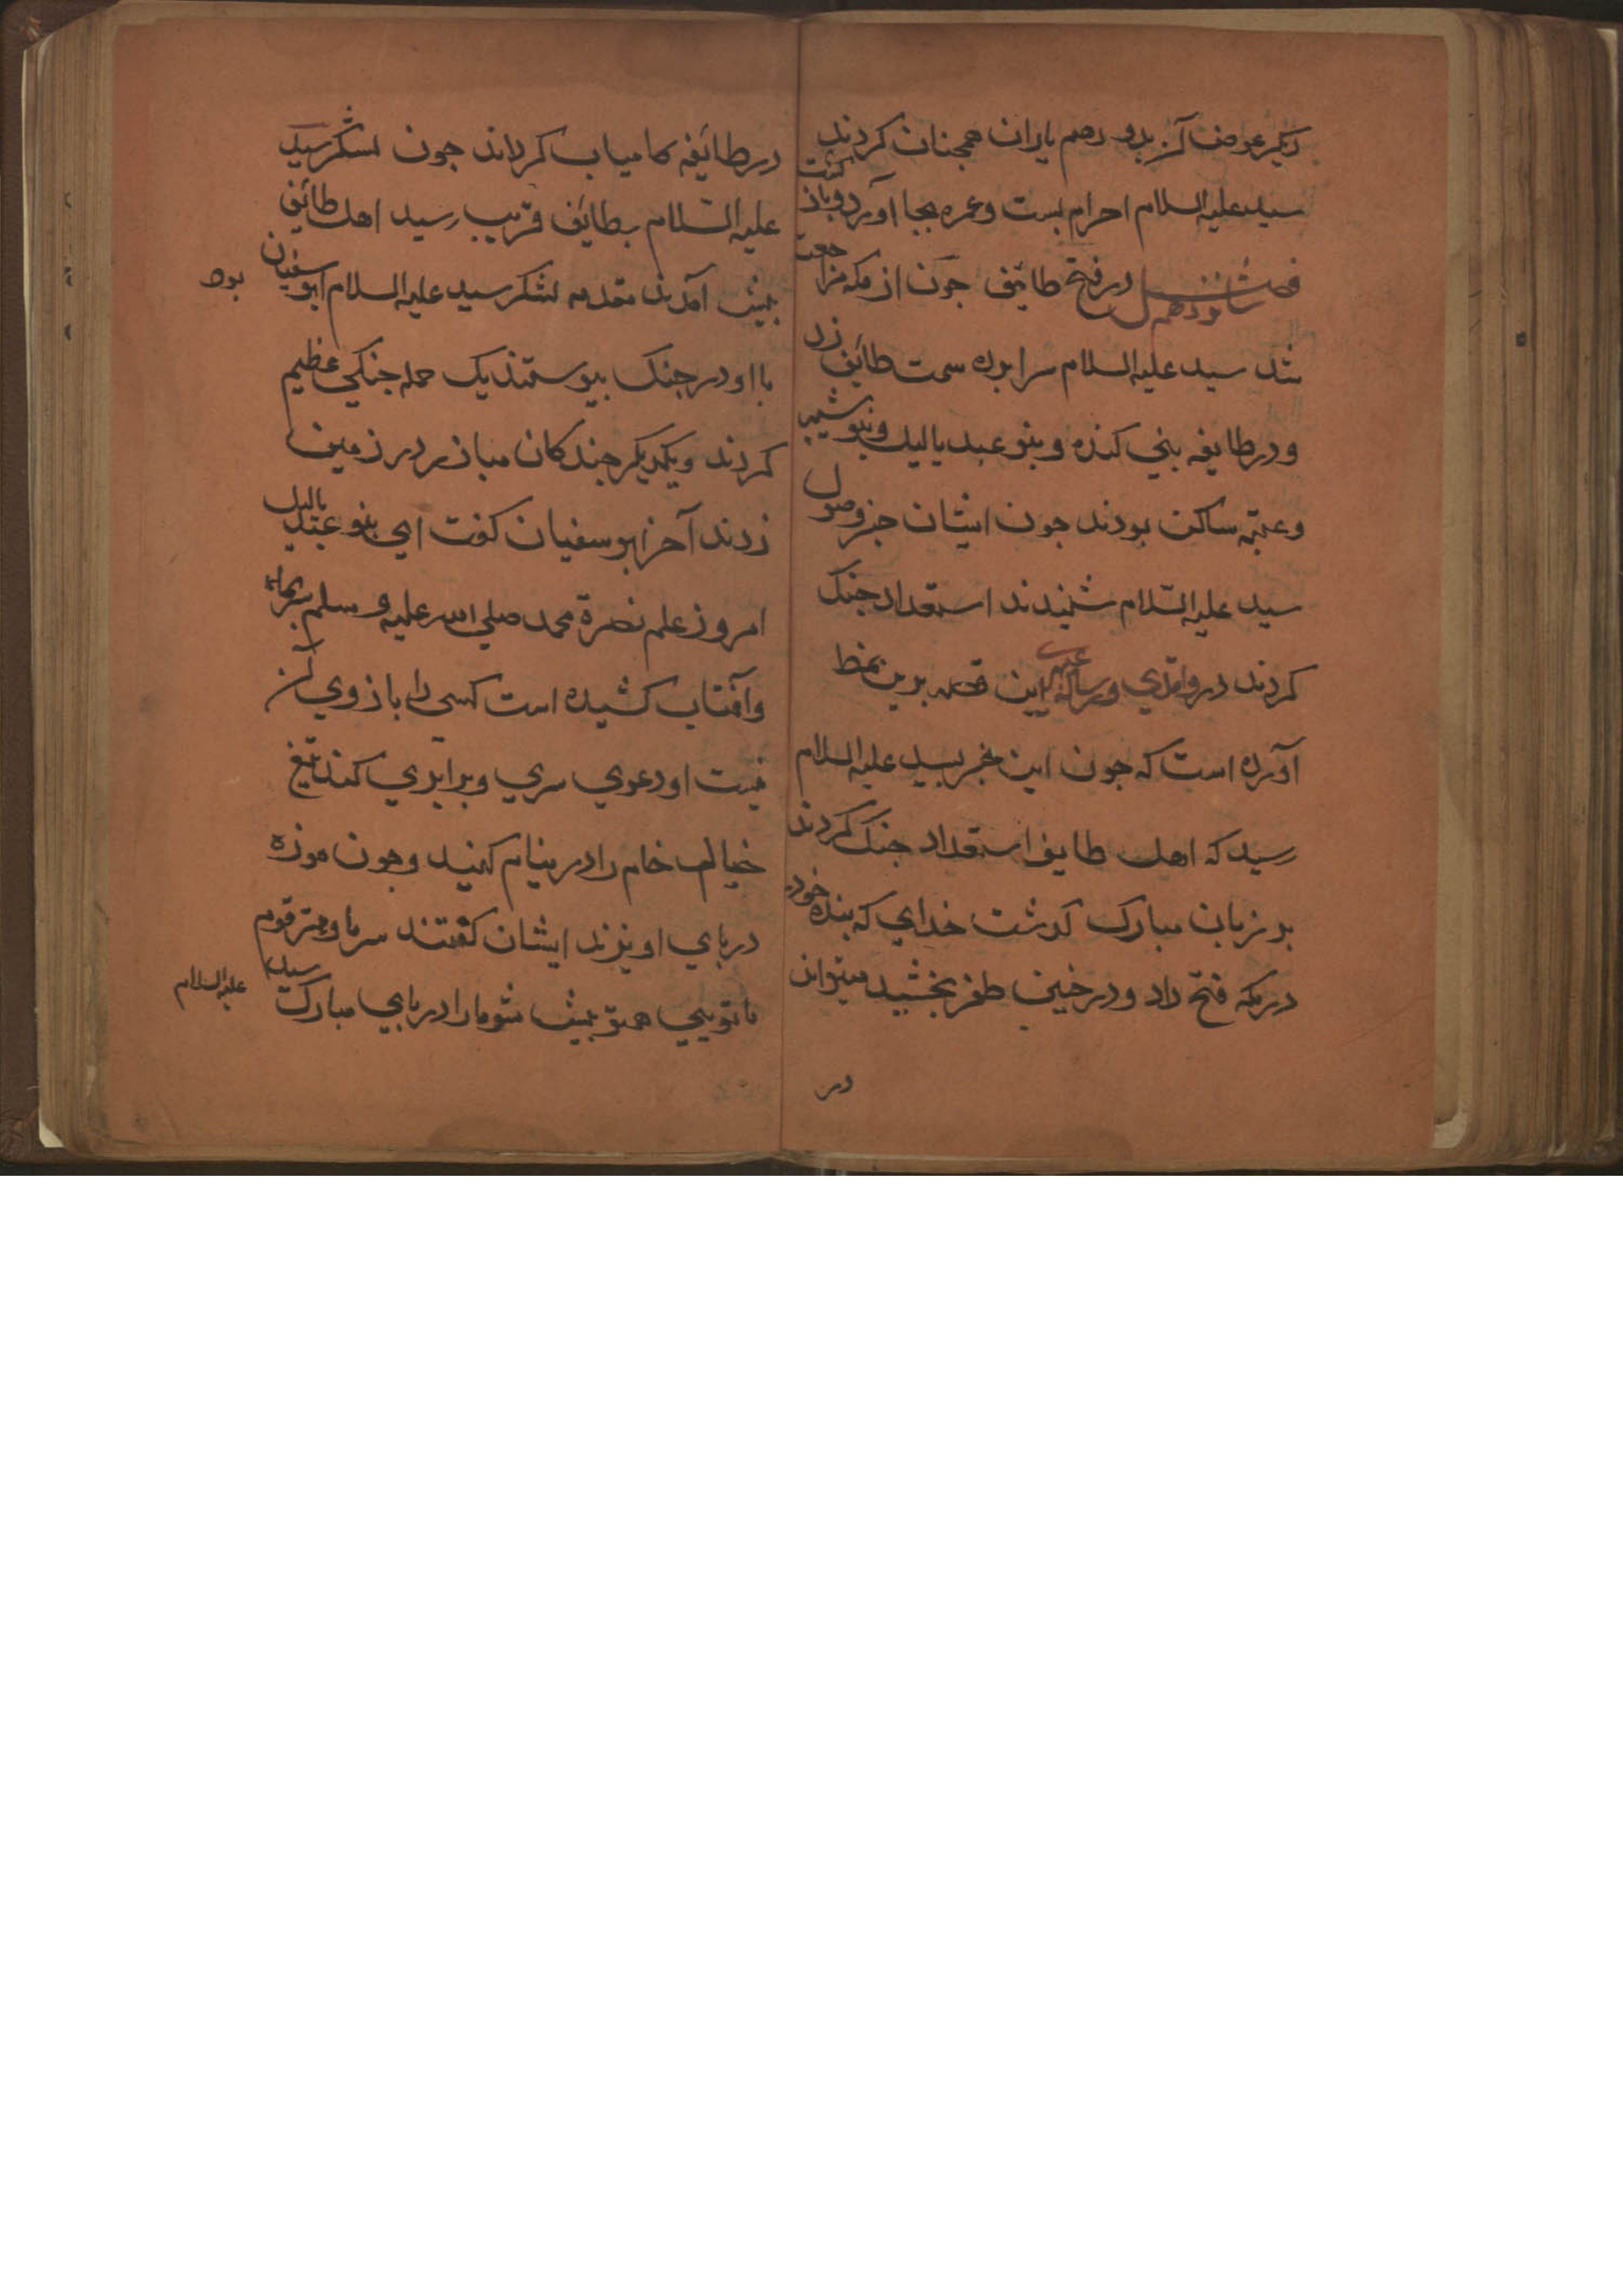 دیکر عوض آن بدو رهم یاران همجنان کردند
سید علیه السلام احرام بست و عمره بجا آورد و باز کشت
فصل شانزدهم در فتح طائف جون از مکه مراجعت
شد سید علیه السلام سرابرده سمت طائف زد
و در طایفه بني کنده و بنو عبد یالیل و بنو شیب
و عتبه ساکن بودند جون ایشان خبر وصول
سید علیه السلام شنیدند استعداد جنک
کردند در واقدي و رساله این قصه برین نمط
آورده است که جون این خبر بسید علیه السلام
رسید که اهل طایف استعداد جنک کردند
بر زبان مبارک کذشت خداي که بنده خود
در مکه فتح داد و در حنین ظفر بخشید میتواند
در
در طائفه کامیاب کرداند جون لشکر سید
علیه السلام بطائف قریب رسید اهل طائف
بیش آمدند مقدمه لشکر سید علیه السلام ابو سفیان بود
با او در جنک بیوستند یک حمله جنکي عظیم
کردند و یکدیکر جندکان مبارز در زمین
زدند آخر ابو سفیان کفت اي بنو عبد یالیل
امروز علم نصرة محمد صلي الله علیه و سلم
و آفتاب کشیده است کسی را بازوي آن
نیست او دعوي سري و برابري کند تیغ
خیال خام را در نیام کنید و جون موزه
در باي او یزند ایشان کفتند سر ما و مهتر قوم
ما تویي هم تو بیش شو ما را در باي مبارک سید علیه السلام